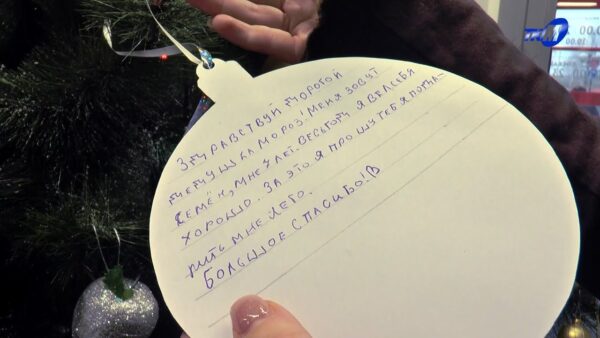 ЗДРАВСТВУЙ ДОРОГОЙ
ДЕДУШКА МОРОЗ! МЕНЯ ЗОВУТ
СЕМЁН, МНЕ 7 ЛЕТ. ВЕСЬ ГОД Я ВЕЛ СЕБЯ
ХОРОШО. ЗА ЭТО Я ПРОШУ ТЕБЯ ПОДА-
РИТЬ МНЕ ЛЕГО.
БОЛЬШОЕ СПАСИБО!